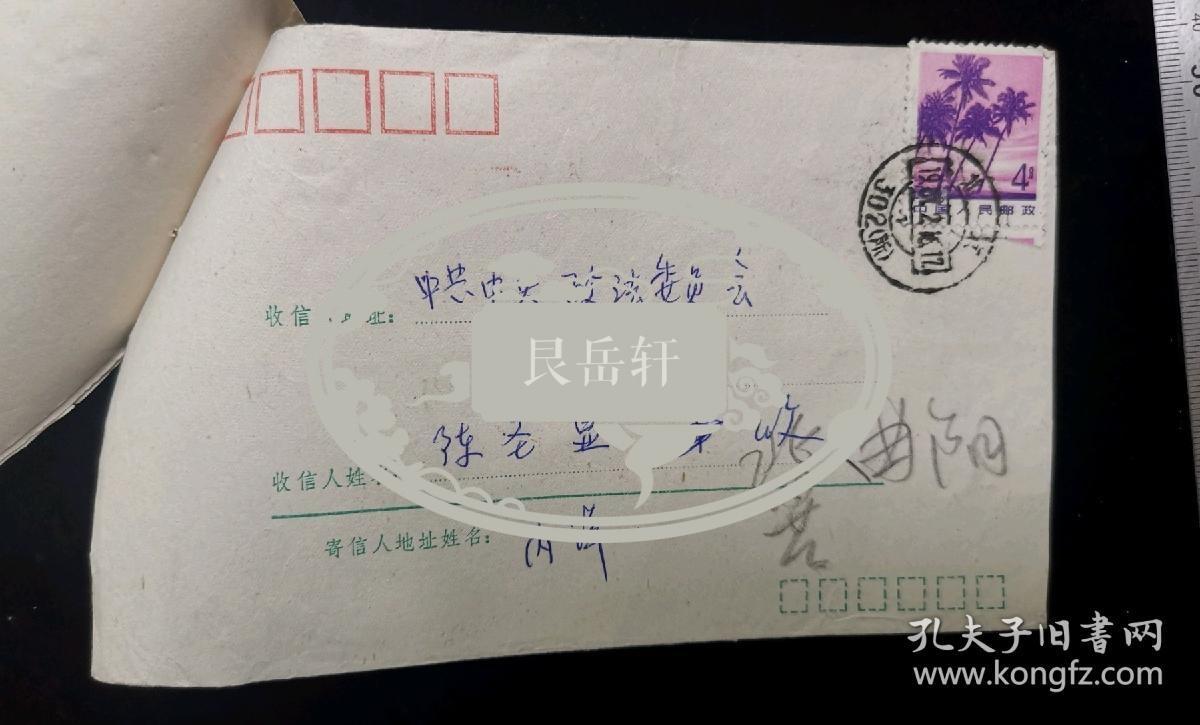 4分
中国人民邮政
302(所)
中共中央政法委员会
收信 址:
艮岳轩
陈丕显 收
曲阳
收信人姓
寄信人地址姓名: 内详
孔夫子旧書网
www.kongfz.com